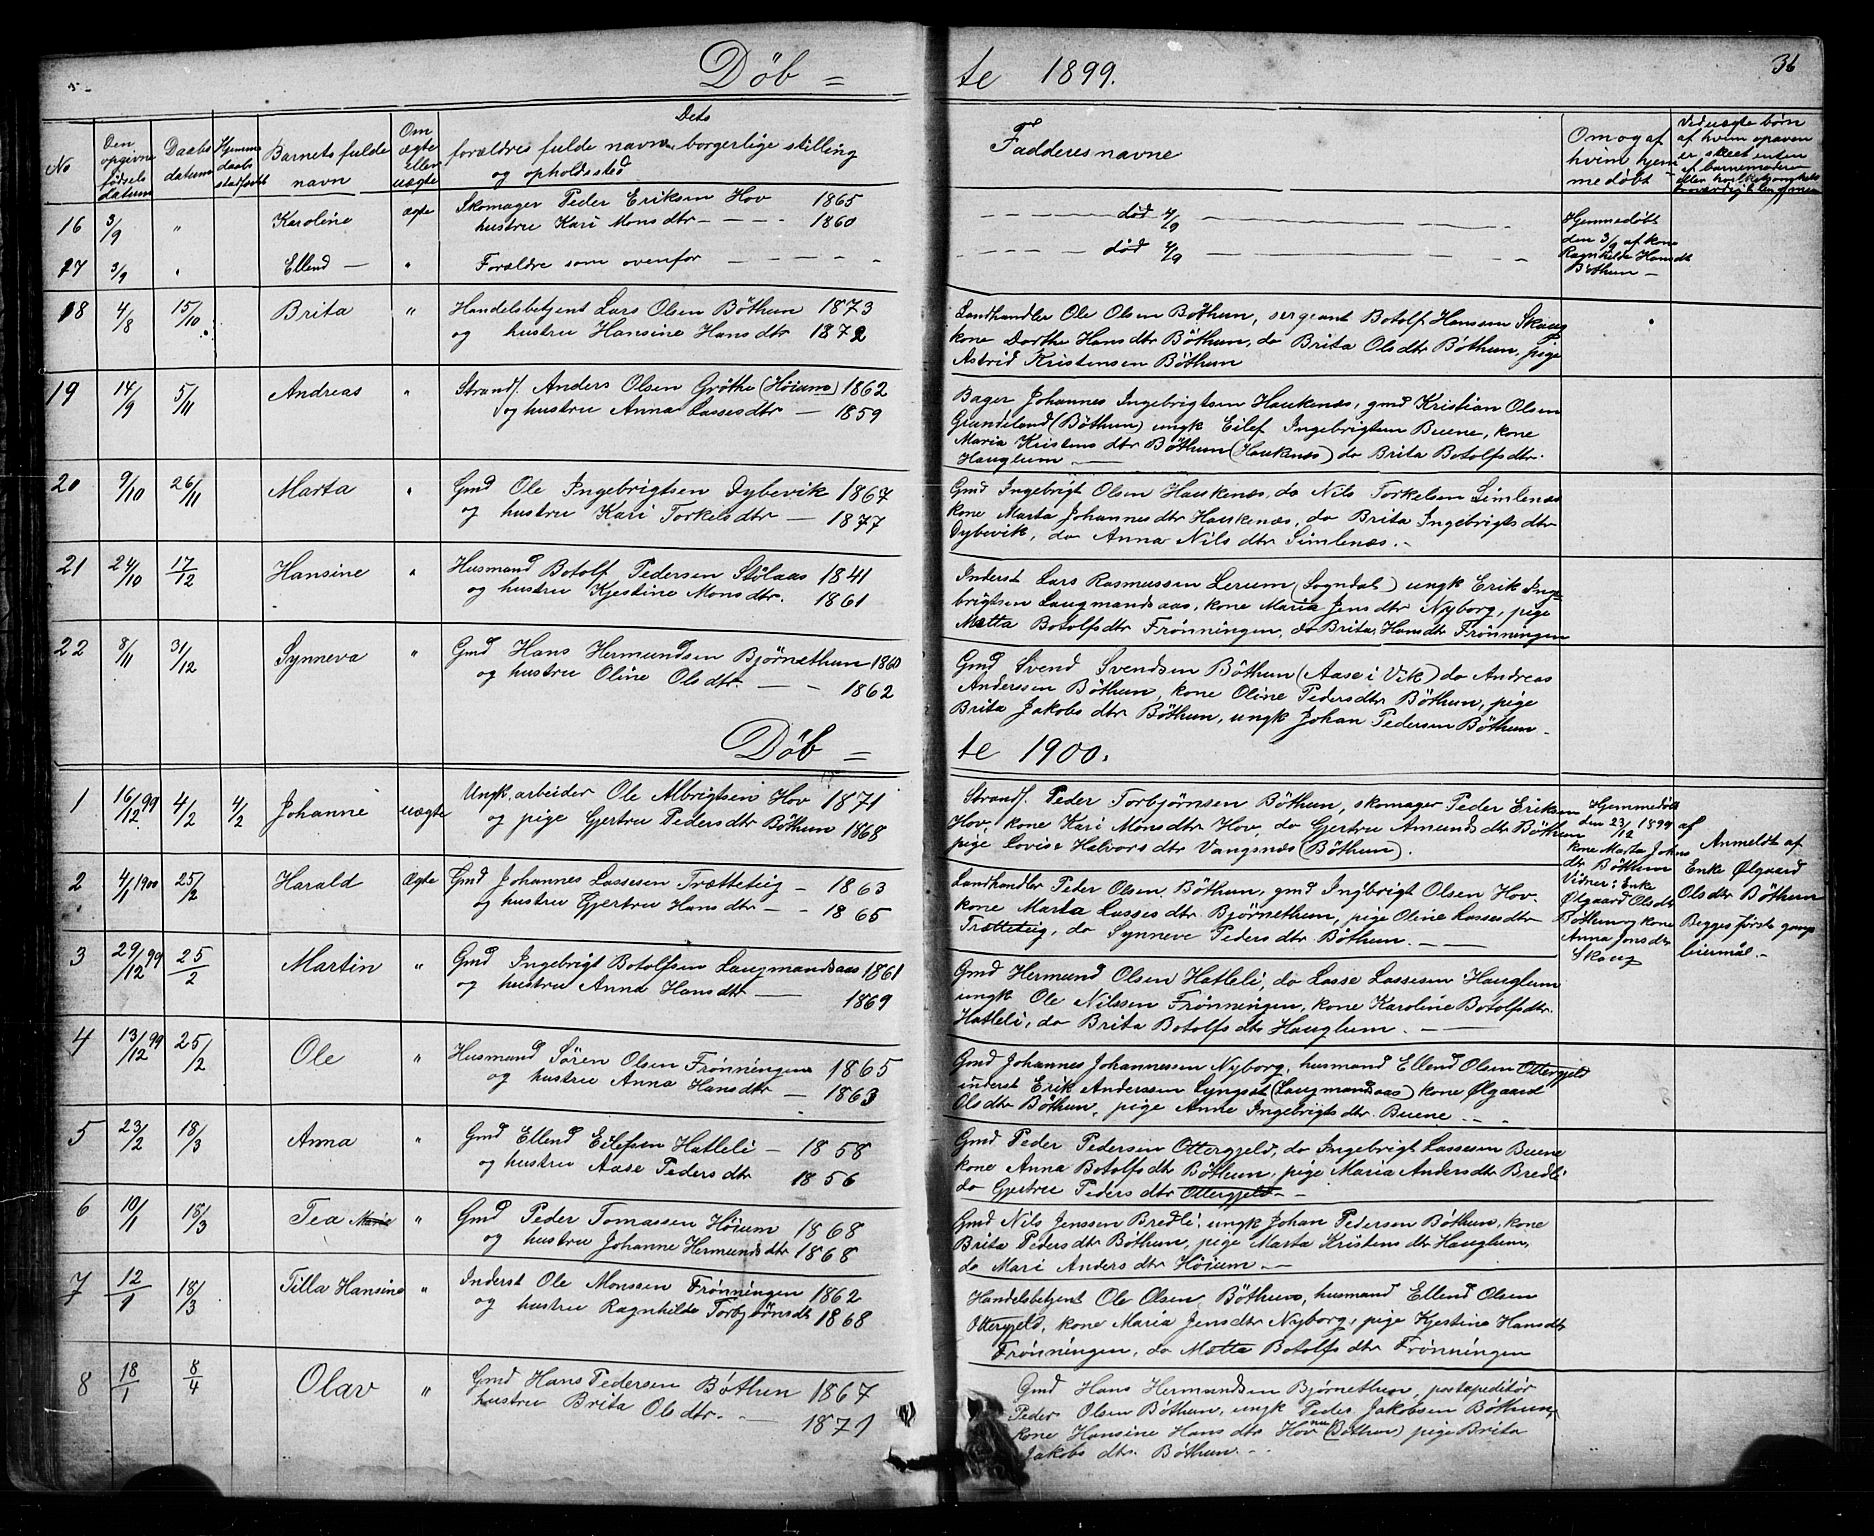 Döb = te 1899.
36
No
Den opgivne fødsels datum
Daabs datum
Hjemme daabs stadfæst
Barnets fulde navn
Om ægte Eller uægte
Dets forældres fulde navn, borgerlige stilling og opholdssted
Fadderes navne
Om og af hvim hjem medøbt
Ved uægte børn af hvim opgaven er skeet enten af barnemoderen eller
16 3/9 " Karoline ægte Skomager Peder Eriksen Hov 1865
hustru Kari Monsdtr - - - 1860
død 4/9
Hjemmedøbt
den 3/9 af kone
Ragnhilde Hansdt
Böthun -
17 3/9 " Ellend - " Forældre som ovenfor - - - -
død 4/9
18 4/8 15/10 Brita " Handelsbetjent Lars Olsen Böthun 1873
og hustru Hansine Hansdtr 1872
Landhandler Ole Olsen Böthun, sergeant Botolf Hanssen Skaug
kone Dorthe Hansdtr Böthun, do Brita Olsdtr Böthun, pige
Astrid Kristensen Böthun
19 14/9 5/11 Andreas " Strands. Anders Olsen Gröthe (Höium) 1862
og hustru Anna Lassesdtr - 1859
Bager Johannes Ingebrigtsen Haukenæs, gmd Kristian Olsen
Grundeland (Böthun) ungk Eilef Ingebrigtsen Buene, kone
Maria Kristensdtr Böthun (Haukenæs) do Brita Botolfsdtr.
Hauglum -
20 9/10 26/11 Marta " Gmd Ole Ingebrigtsen Dybevik 1867
og hustru Kari Torkelsdtr - 1877
Gmd Ingebrigt Olsen Haukenæs, do Nils Torkelsen Simlenæs
kone Marta Johannesdtr Haukenæs, do Brita Ingebrigtsdtr
Dybevik, do Anna Nilsdtr Simlenæs. -
21 24/10 17/12 Hansine " Husmand Botolf Pedersen Stölaas 1841
og hustru Kjestine Monsdtr. 1861
Inderst Lars Rasmussen Lerum (Sogndal) ungk Erik Inge-
brigtsen Laugmandsaas, kone Maria Jensdtr Nyborg, pige
Metta Botolfsdtr Frönningen, do Brita Hansdtr Frönningen
22 8/11 31/12 Synneva " Gmd Hans Hermundsen Björnethun 1860
og hustru Oline Olsdtr. - - 1862
Gmd Svend Svendsen Böthun (Aase i Vik) do Andreas
Anderssen Böthun, kone Oline Pedersdtr Böthun, pige
Brita Jakobsdtr Böthun, ungk Johan Pedersen Böthun -
Döb = te 1900.
1 16/12 99 4/2 4/2 Johanne uægte Ungk. arbeider Ole Albrigtsen Hov 1871
og pige Gjertru Pedersdtr Böthun 1868
Strands. Peder Torbjørnsen Böthun, skomager Peder Eriksen
Hov, kone Kari Monsdtr Hov, do Gjertru Amundsdtr Böthun
pige Lovise Halvorsdtr Vangsnæs (Böthun).
Hjemmedöbt
den 23/12 1899 af
kone Marta Johns
dtr Böthun
Vidner: Enke
Ølgaard Olsdtr
Böthun og kone
Anna Jonsdtr
Skaug
Anmeldt af
Enke Ølgaard
Olsdtr Böthun
Begges förste gangs
leiermål. -
2 4/1 1900 25/2 Harald Ægte Gmd Johannes Lassesen Trætteteig - 1863
og hustru Gjertru Hansdtr - - 1865
Landhandler Peder Olsen Böthun, gmd Ingebrigt Olsen Hov.
kone Marta Lassesdtr Björnethun, pige Oline Lassesdtr
Trætteteig, do Synneve Pedersdtr Böthun. -
3 29/12 99 25/2 Martin " Gmd Ingebrigt Botolfsen Laugmandsaas 1861
og hustru Anna Hansdtr - 1869
Gmd Hermund Olsen Hatleli, do Lasse Lassesen Hauglum
ungk Ole Nilssen Frönningen, kone Karoline Botolfsdtr.
Hatleli, do Brita Botolfsdtr Hauglum. -
4 13/12 99 25/2 Ole " Husmand Sören Olsen Frönningen 1865
og hustru Anna Hansdtr - 1863
Gmd Johannes Johannessen Nyborg, husmand Ellend Olsen Ottergjeld
inderst Erik Anderssen Lyngset (Laugmandsaas) kone Ølgaard
Olsdtr Böthun, pige Anne Ingebrigtsdtr. Buene - -
5 23/2 18/3 Anna " Gmd Ellend Eilefsen Hatleli - 1858
og hustru Aase Pedersdtr 1856
Gmd Peder Pedersen Ottergjeld, do Ingebrigt Lassesen Buene
kone Anna Botolfsdtr Böthun, pige Maria Andersdtr Bredli
do Gjertru Pedersdtr Ottergjeld - -
6 10/1 18/3 Tea Marie " Gmd Peder Tomassen Höium 1868
og hustru Johanne Hermundsdtr 1868
Gmd Nils Jenssen Bredli, ungk Johan Pedersen Böthun, kone
Brita Pedersdtr Böthun, pige Marta Kristensdtr Hauglum,
do Mari Andersdtr Höium. -
7 12/1 18/3 Tilla Hansine " Inderst Ole Monssen Frönningen 1862
og hustru Ragnhilde Torbjörnsdt 1868
Handelsbetjent Ole Olsen Böthun, husmand Ellend Olsen
Ottergjeld, kone Maria Jensdtr Nyborg, pige Kjestine Hansdtr
Frönningen, do Metta Botolfsdtr Frönningen
8 18/1 8/4 Olav " Gmd Hans Pedersen Böthun 1867
hustru Brita Olsdtr. - 1871
Gmd Hans Hermundsen Björnethun, postexpeditör
Peder Olsen Böthun, ungk Peder Jakobsen Böthun,
kone Hansine Hansdtr Hov (nu Böthun) pige Brita
Jakobsdtr. Böthun. -